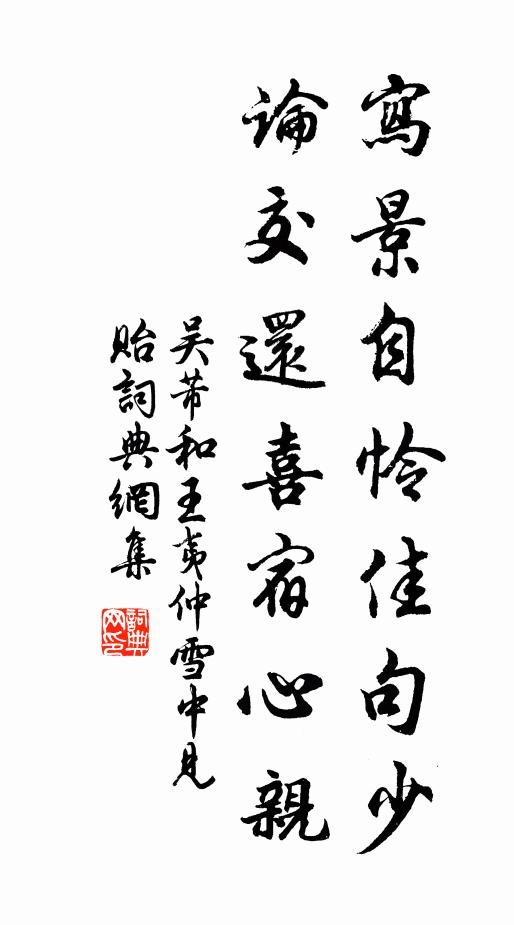 寫景自怜佳句少
論交還喜宿心親
吳芾和王夷仲雪中見
貽詞典網集
詞典網印